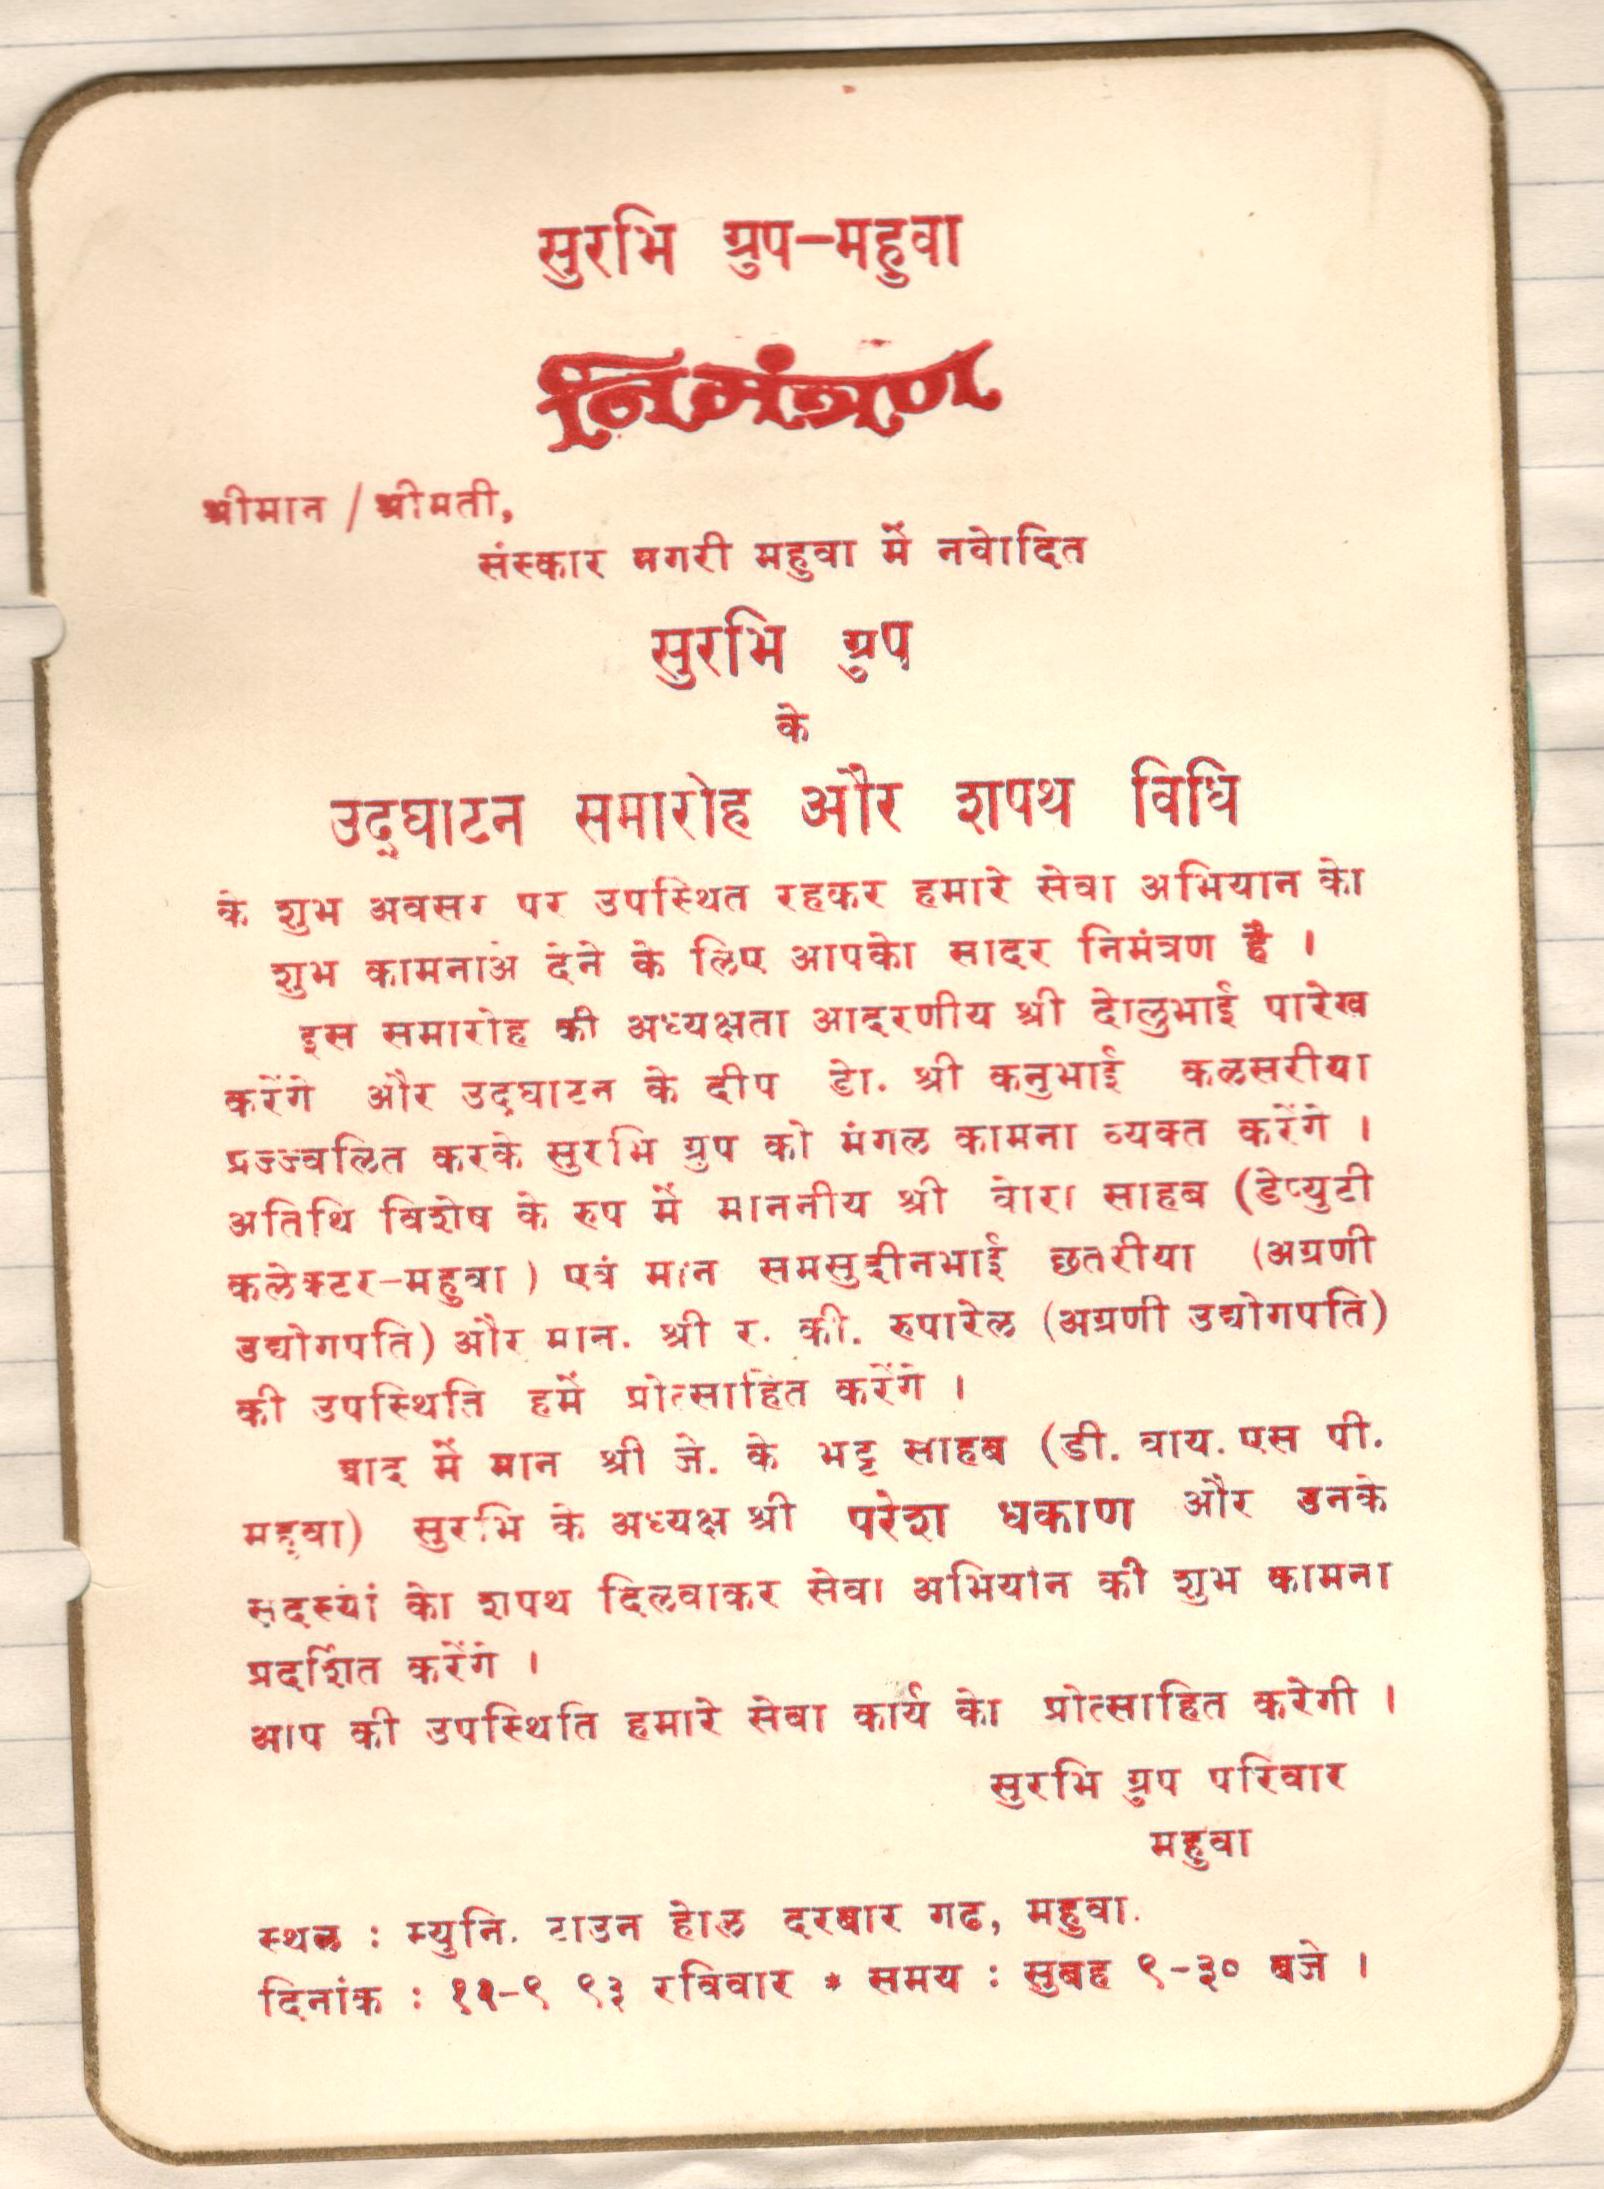 सुरभि ग्रुप-महुवा
निमंत्रण
श्रीमान / श्रीमती,
संस्कार नगरी महुवा में नवोदित
सुरभि ग्रुप
के
उद्घाटन समारोह और शपथ विधि
के शुभ अवसर पर उपस्थित रहकर हमारे सेवा अभियान को
शुभ कामनाअे देने के लिए आपको सादर निमंत्रण है ।
इस समारोह की अध्यक्षता आदरणीय श्री दोलुभाई पारेख
करेंगे और उद्घाटन के दीप डो. श्री कनुभाई कळसरीया
प्रज्ज्वलित करके सुरभि ग्रुप को मंगल कामना व्यक्त करेंगे ।
अतिथि विशेष के रुप में माननीय श्री वोरा साहब (डेप्युटी
कलेक्टर-महुवा) एवं मान समसुद्दीनभाई छतरीया (अग्रणी
उद्योगपति) और मान. श्री र. की. रुपारेल (अग्रणी उद्योगपति)
की उपस्थिति हमें प्रोत्साहित करेंगे ।
बाद में मान श्री जे. के भट्ट साहब (डी. वाय. एस पी.
महुवा) सुरभि के अध्यक्ष श्री परेश धकाण और उनके
सदस्यों को शपथ दिलवाकर सेवा अभियान की शुभ कामना
प्रदर्शित करेंगे ।
आप की उपस्थिति हमारे सेवा कार्य को प्रोत्साहित करेगी ।
सुरभि ग्रुप परिवार
महुवा
स्थल : म्युनि. टाउन होल दरबार गढ, महुवा.
दिनांक : १२-९ ९३ रविवार * समय : सुबह ९-३० बजे ।